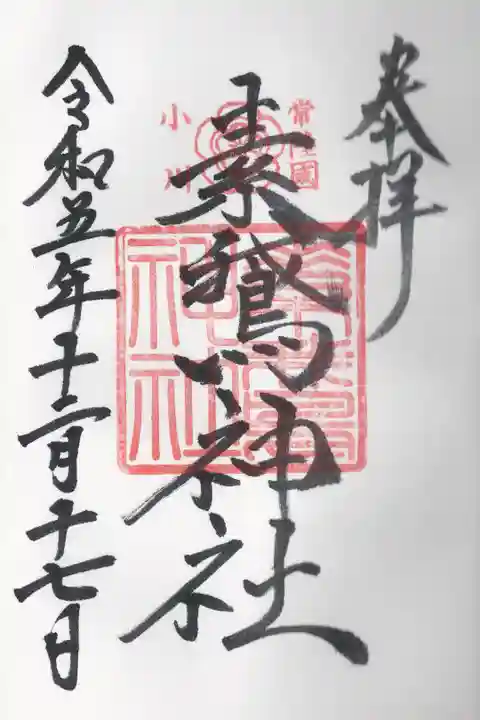 奉拝
常陸國
小川
素鵞神社
令和五年十二月十七日